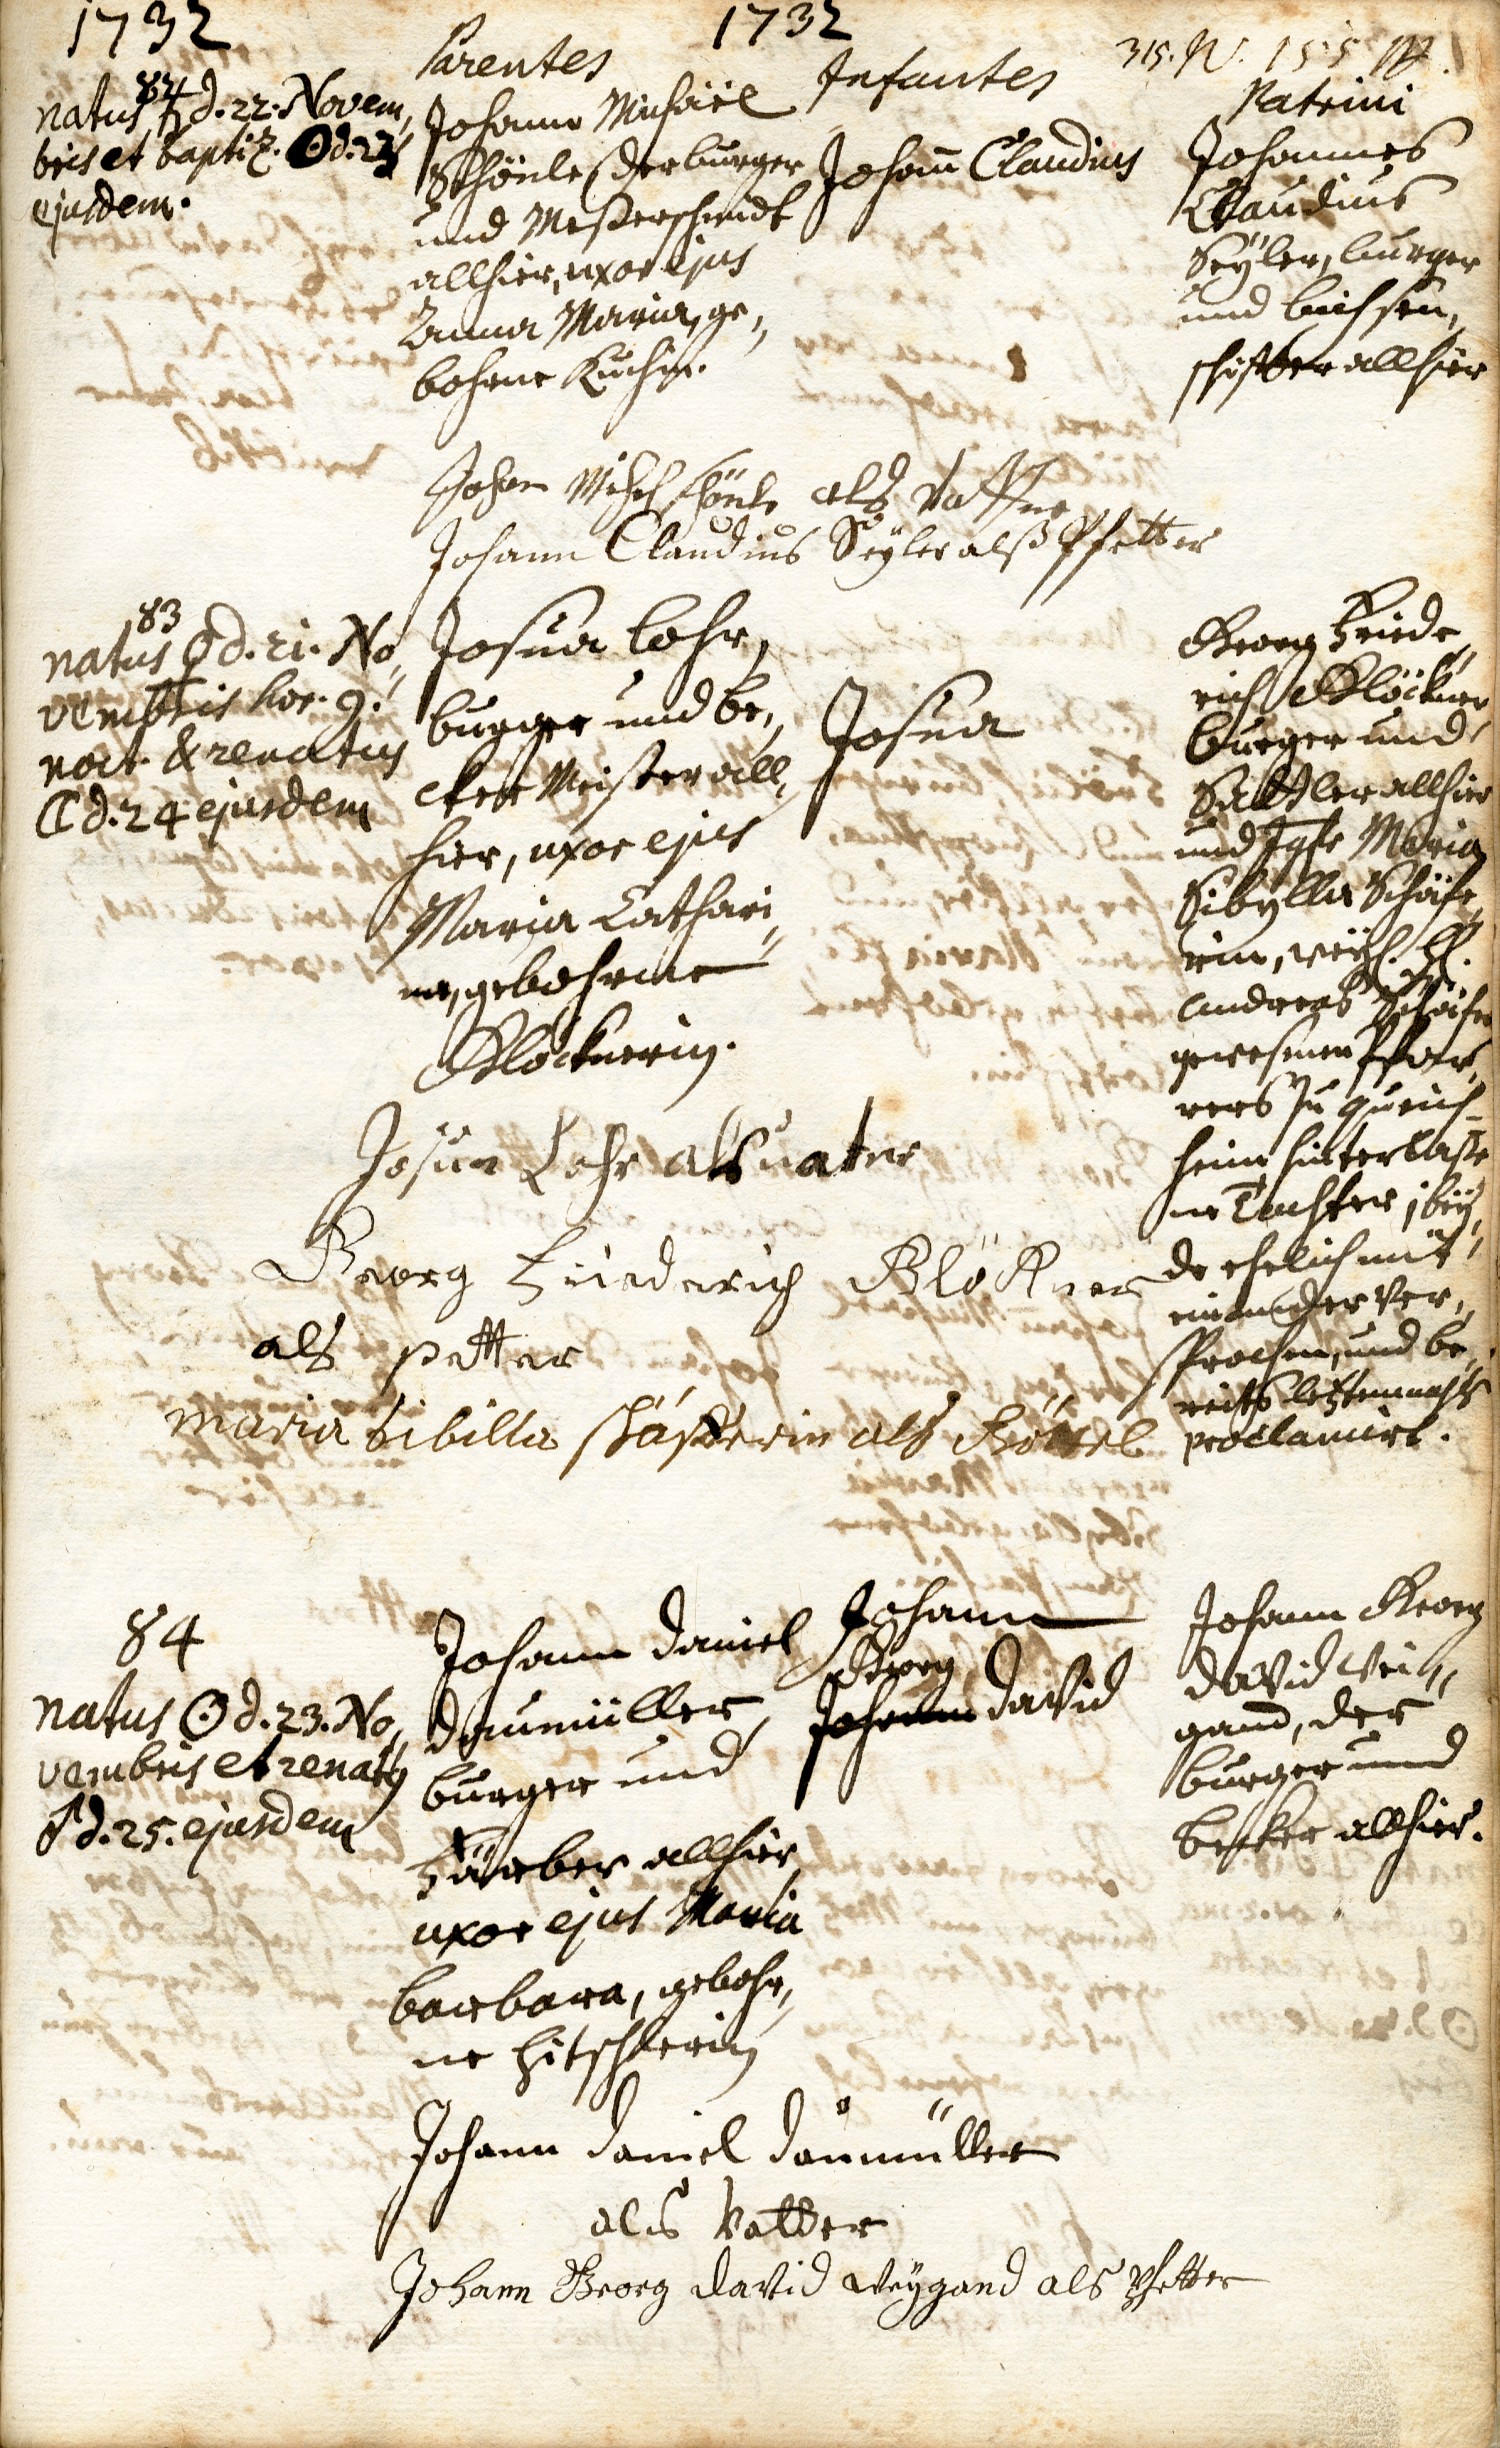 1732
1732
Parentes
Infantes
315. N. 155
Patrini
82
natus ♄ d. 22. Novem,
bris et baptiz. ☉ d. 23
ejusdem.
Johann Michaël
Schönle, der burger
und Messerschmidt
allhier, uxor ejus
Anna Maria, ge,
bohrne Kuchin.
Johann Claudius
Johannes
Claudius
Seÿler, burger
und büchsen,
schiffter allhier
Johan Michel schönle als Vatter
Johann Claudius Seyler alß Pfetter
83
natus ♀ d. 21. No,
vembris hor. 9.
noct. & renatus
☾ d. 24 ejusdem
Josua Lohr,
burger und be,
cker Meister all,
hier, uxor ejus
Maria Cathari,
na, gebohrne
Klöcknerin.
Josua
Georg Friede,
rich Klöckner
burger und
Sattler allhier
und Jgfr Maria
Sibylla Schäfe,
rin, weyl. H.
Andreas Schäfer
gewesenen Pfar,
rers zu Queich-
heim hinterlaße
ne Tochter, beÿ,
de ehelich mit
einander ver,
sprochen, und be,
reits letztemahls
proclamirt.
Josua Lohr als vater
Georg Friederich Klökner
als petter
maria sibilla schäfferin als Göttel
84
natus ☉ d. 23. No,
vembris et renatus
♂ d. 25. ejusdem
Johann Daniel
Daumüller,
burger und
Färber allhier,
uxor ejus Maria
Barbara, gebohr,
ne Hitschlerin
Johann
Georg
Johann David
Johann Georg
David Wei,
gand, der
burger und
becker allhier.
Johann Daniel Daumüller
als Vatter
Johann Georg David Weÿgand als Pfetter